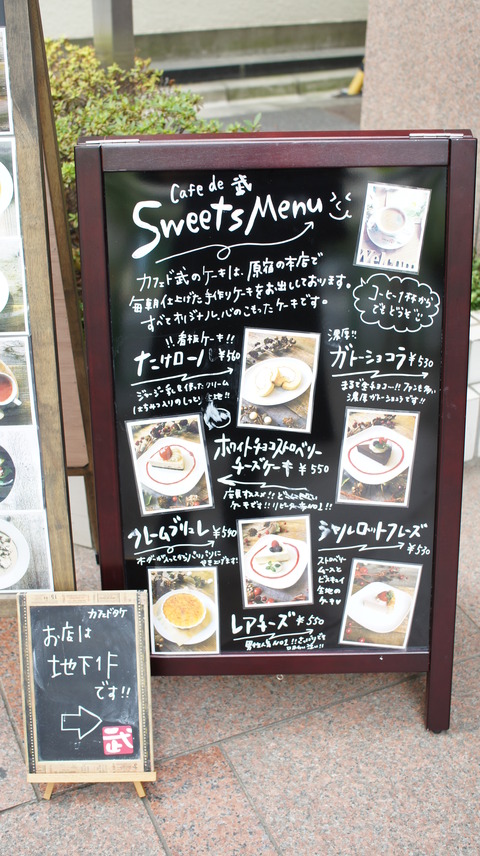 Cafe de 武
Sweets Menu
カフェド武のケーキは、原宿の本店で
毎朝仕上げた手作りケーキをお出ししております。
すべてオリジナル、心のこもったケーキです。
コーヒー1杯から
でもどうぞ
!!看板ケーキ!!
たけロール ¥560
ジャージー乳を使ったクリーム
濃厚!!
ガトーショコラ ¥530
まるで生チョコ!!ファンも多い
濃厚ガトーショコラです!!
ホワイトチョコストロベリー
チーズケーキ ¥550
店長オススメ!!
ケーキです!!
クレームブリュレ ¥590
オーダーが入ってからパリパリに
ストロベリー
ムースと
ビスキュイ
生地の
ケーキ
シャルロットフレーズ
¥530
レアチーズ ¥550
カフェドタケ
お店は
地下1F
です!!
武